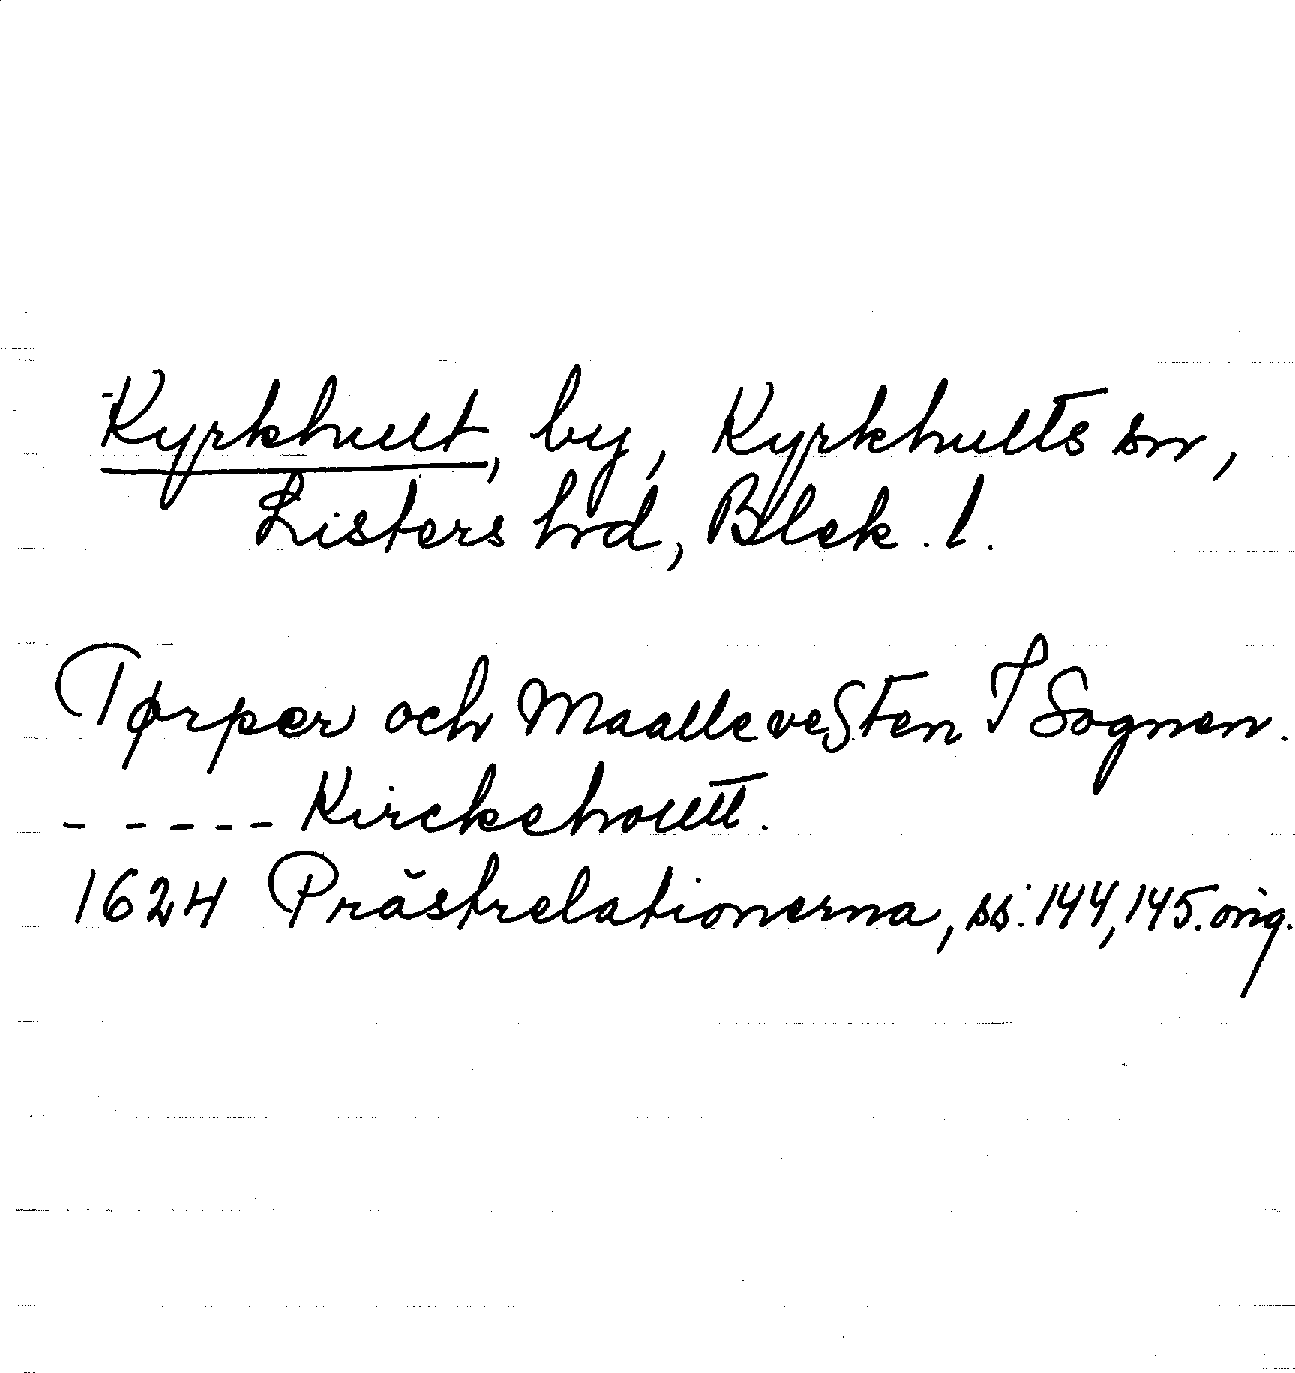 Kyrkhult, by, Kyrkhults sn,
Listers hd, Blek. l.
Tørper och Maallevesten I Sognen.
- - - - - Kirckehoultt.
1624 Prästrelationerna, ss. 144, 145. orig.